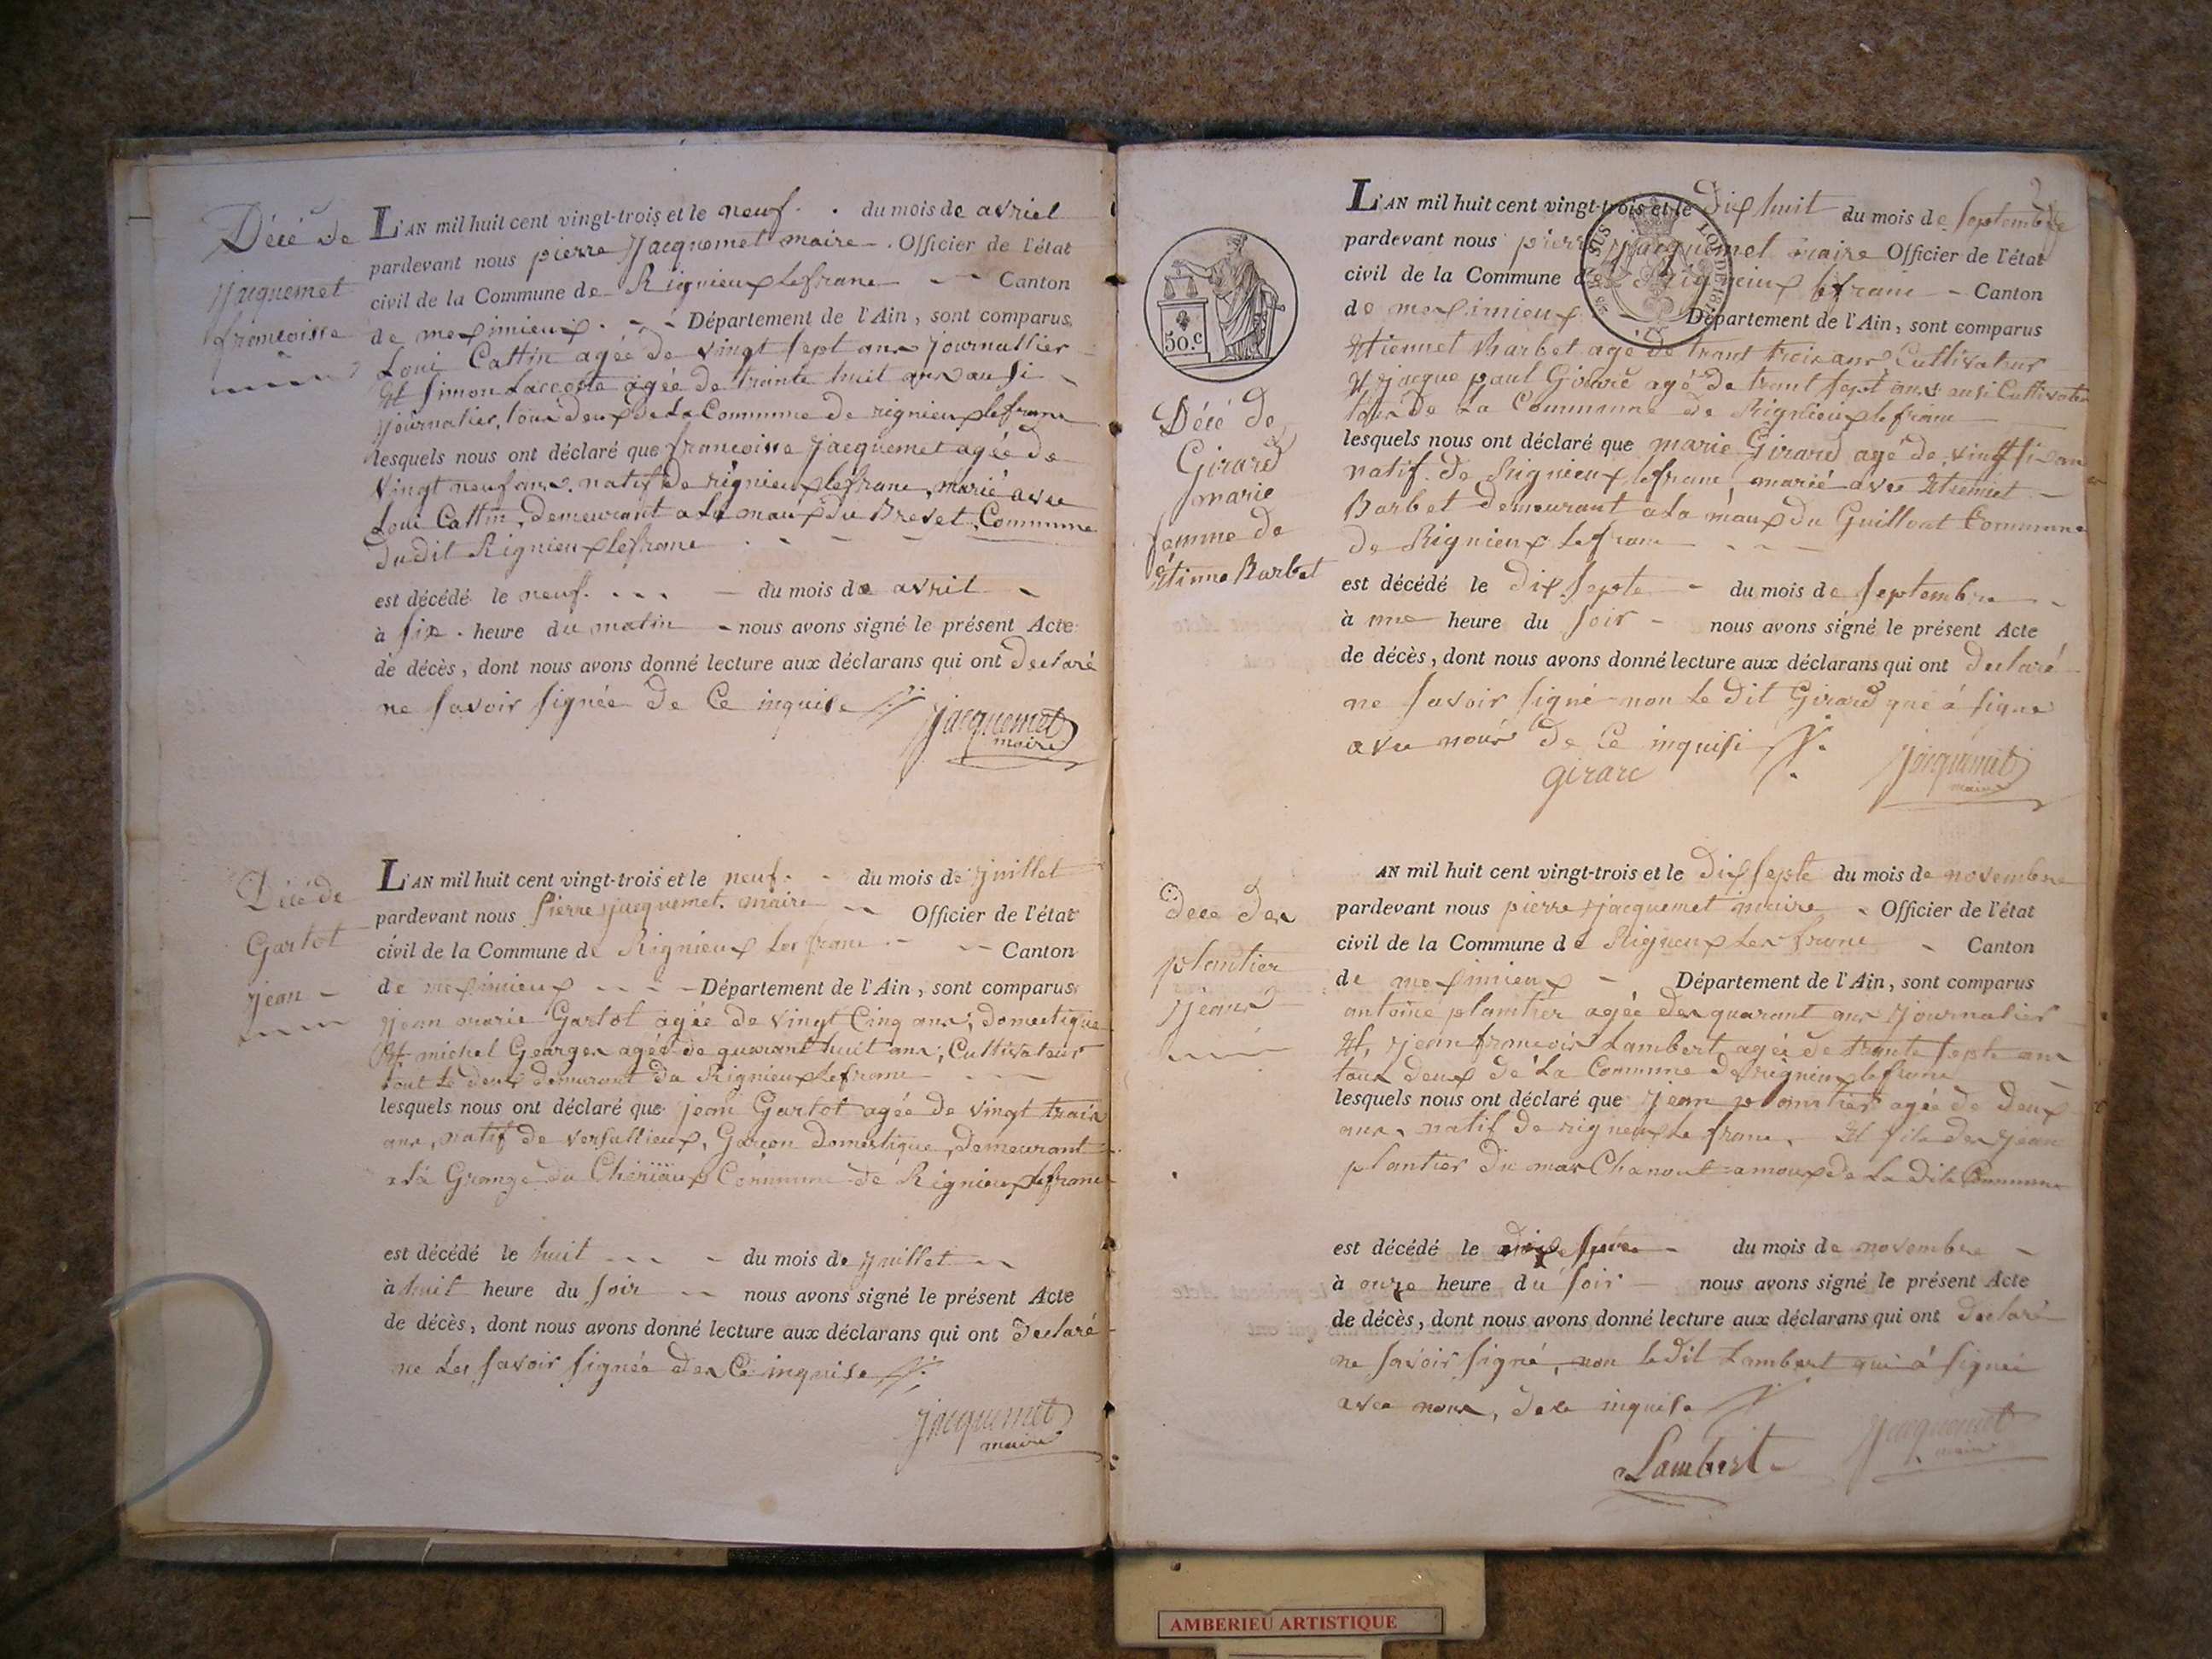 Décé de
Jacquemet
francoisse
L'AN mil huit cent vingt-trois et le neuf. . du mois de avriel
pardevant nous pierre Jacquemet maire . Officier de l'état
civil de la Commune de Rignieux lefranc Canton
de meximieux . Département de l'Ain, sont comparus
Loui Cattin agée de vingt sept ans journallier
Et Simon Laccotte agée de trainte huit ans ausi
journalier, tous deux de La Commune de rignieux lefranc
lesquels nous ont déclaré que francoisse Jacquemet agée de
vingt neuf ans. natif de rignieux lefranc, marié avec
Loui Cattin, demeurant a La maux du Brevet, Commune
dudit Rignieux lefranc
est décédé le neuf. du mois de avril
à six . heure du matin nous avons signé le présent Acte
de décès, dont nous avons donné lecture aux déclarans qui ont declaré
ne savoir signée de Ce inquise
Jacquemet
maire
Décé de
Gartot
jean
L'AN mil huit cent vingt-trois et le neuf. du mois de juillet
pardevant nous Pierre jacquemet. maire Officier de l'état
civil de la Commune de Rignieux Les franc Canton
de meximieux Département de l'Ain, sont comparus
jean marie Gartot agée de vingt Cinq ans, domestique
Et michel Georges agée de quarant huit ans, Cultivateur
tout Le deux demurant du Rignieux Lefranc
lesquels nous ont déclaré que jean Gartot agée de vingt trais
ans, natif de versallieux, Garçon domestique, demeurant
a la Grange du Cheriaux Commune de Rignieux lefranc
est décédé le huit du mois de juillet
à huit heure du soir nous avons signé le présent Acte
de décès, dont nous avons donné lecture aux déclarans qui ont declaré
ne Les savoir signée des Ce inquise
jacquemet
maire
50.c
Décé de
Girard
marie
femme de
étienne Barbet
L'AN mil huit cent vingt-trois et le Dix huit du mois de septembre
pardevant nous pierre Jacquemet maire Officier de l'état
civil de la Commune de Rignieux lefranc Canton
de meximieux Département de l'Ain, sont comparus
Etiennet Barbet agé de trant trois ans Cultivateur
Et jacque paul Girard agé de trant sept ans ausi Cultivateu
tous de La Commune de Rignieux lefranc
lesquels nous ont déclaré que marie Girard agé de vingt six ans
natif de Rignieux lefranc, marié avec Etiennet
Barbet demeurant a La maux du Guillout Commune
de Rignieux Lefranc
est décédé le dix septe du mois de septembre
à une heure du soir nous avons signé le présent Acte
de décès, dont nous avons donné lecture aux déclarans qui ont declaré
ne savoir signé non Le dit Girard qui à signe
avec nous de Ce inquisi
girard
Jacquemet
maire
Décé des
plantier
jean
AN mil huit cent vingt-trois et le dix septe du mois de novembre
pardevant nous pierre jacquemet maire Officier de l'état
civil de la Commune de Rigneux Les franc Canton
de meximieux Département de l'Ain, sont comparus
antoine plantier agée des quarant ans journalier
Et, jean francois Lambert agée de trante septe ans
tous deux de La Commune de rignieux lefranc
lesquels nous ont déclaré que jean plantier agée de deux
ans, natif de rigneux Le franc, Et fils des jean
plantier du mas Chanout amoux de La dite Commune
est décédé le dix septe du mois de novembre
à onze heure du soir nous avons signé le présent Acte
de décès, dont nous avons donné lecture aux déclarans qui ont declaré
ne savoir signé, non ledit Lambert qui à signée
avec nous, de ce inquise
Lambert
Jacquemet
maire
AMBERIEU ARTISTIQUE